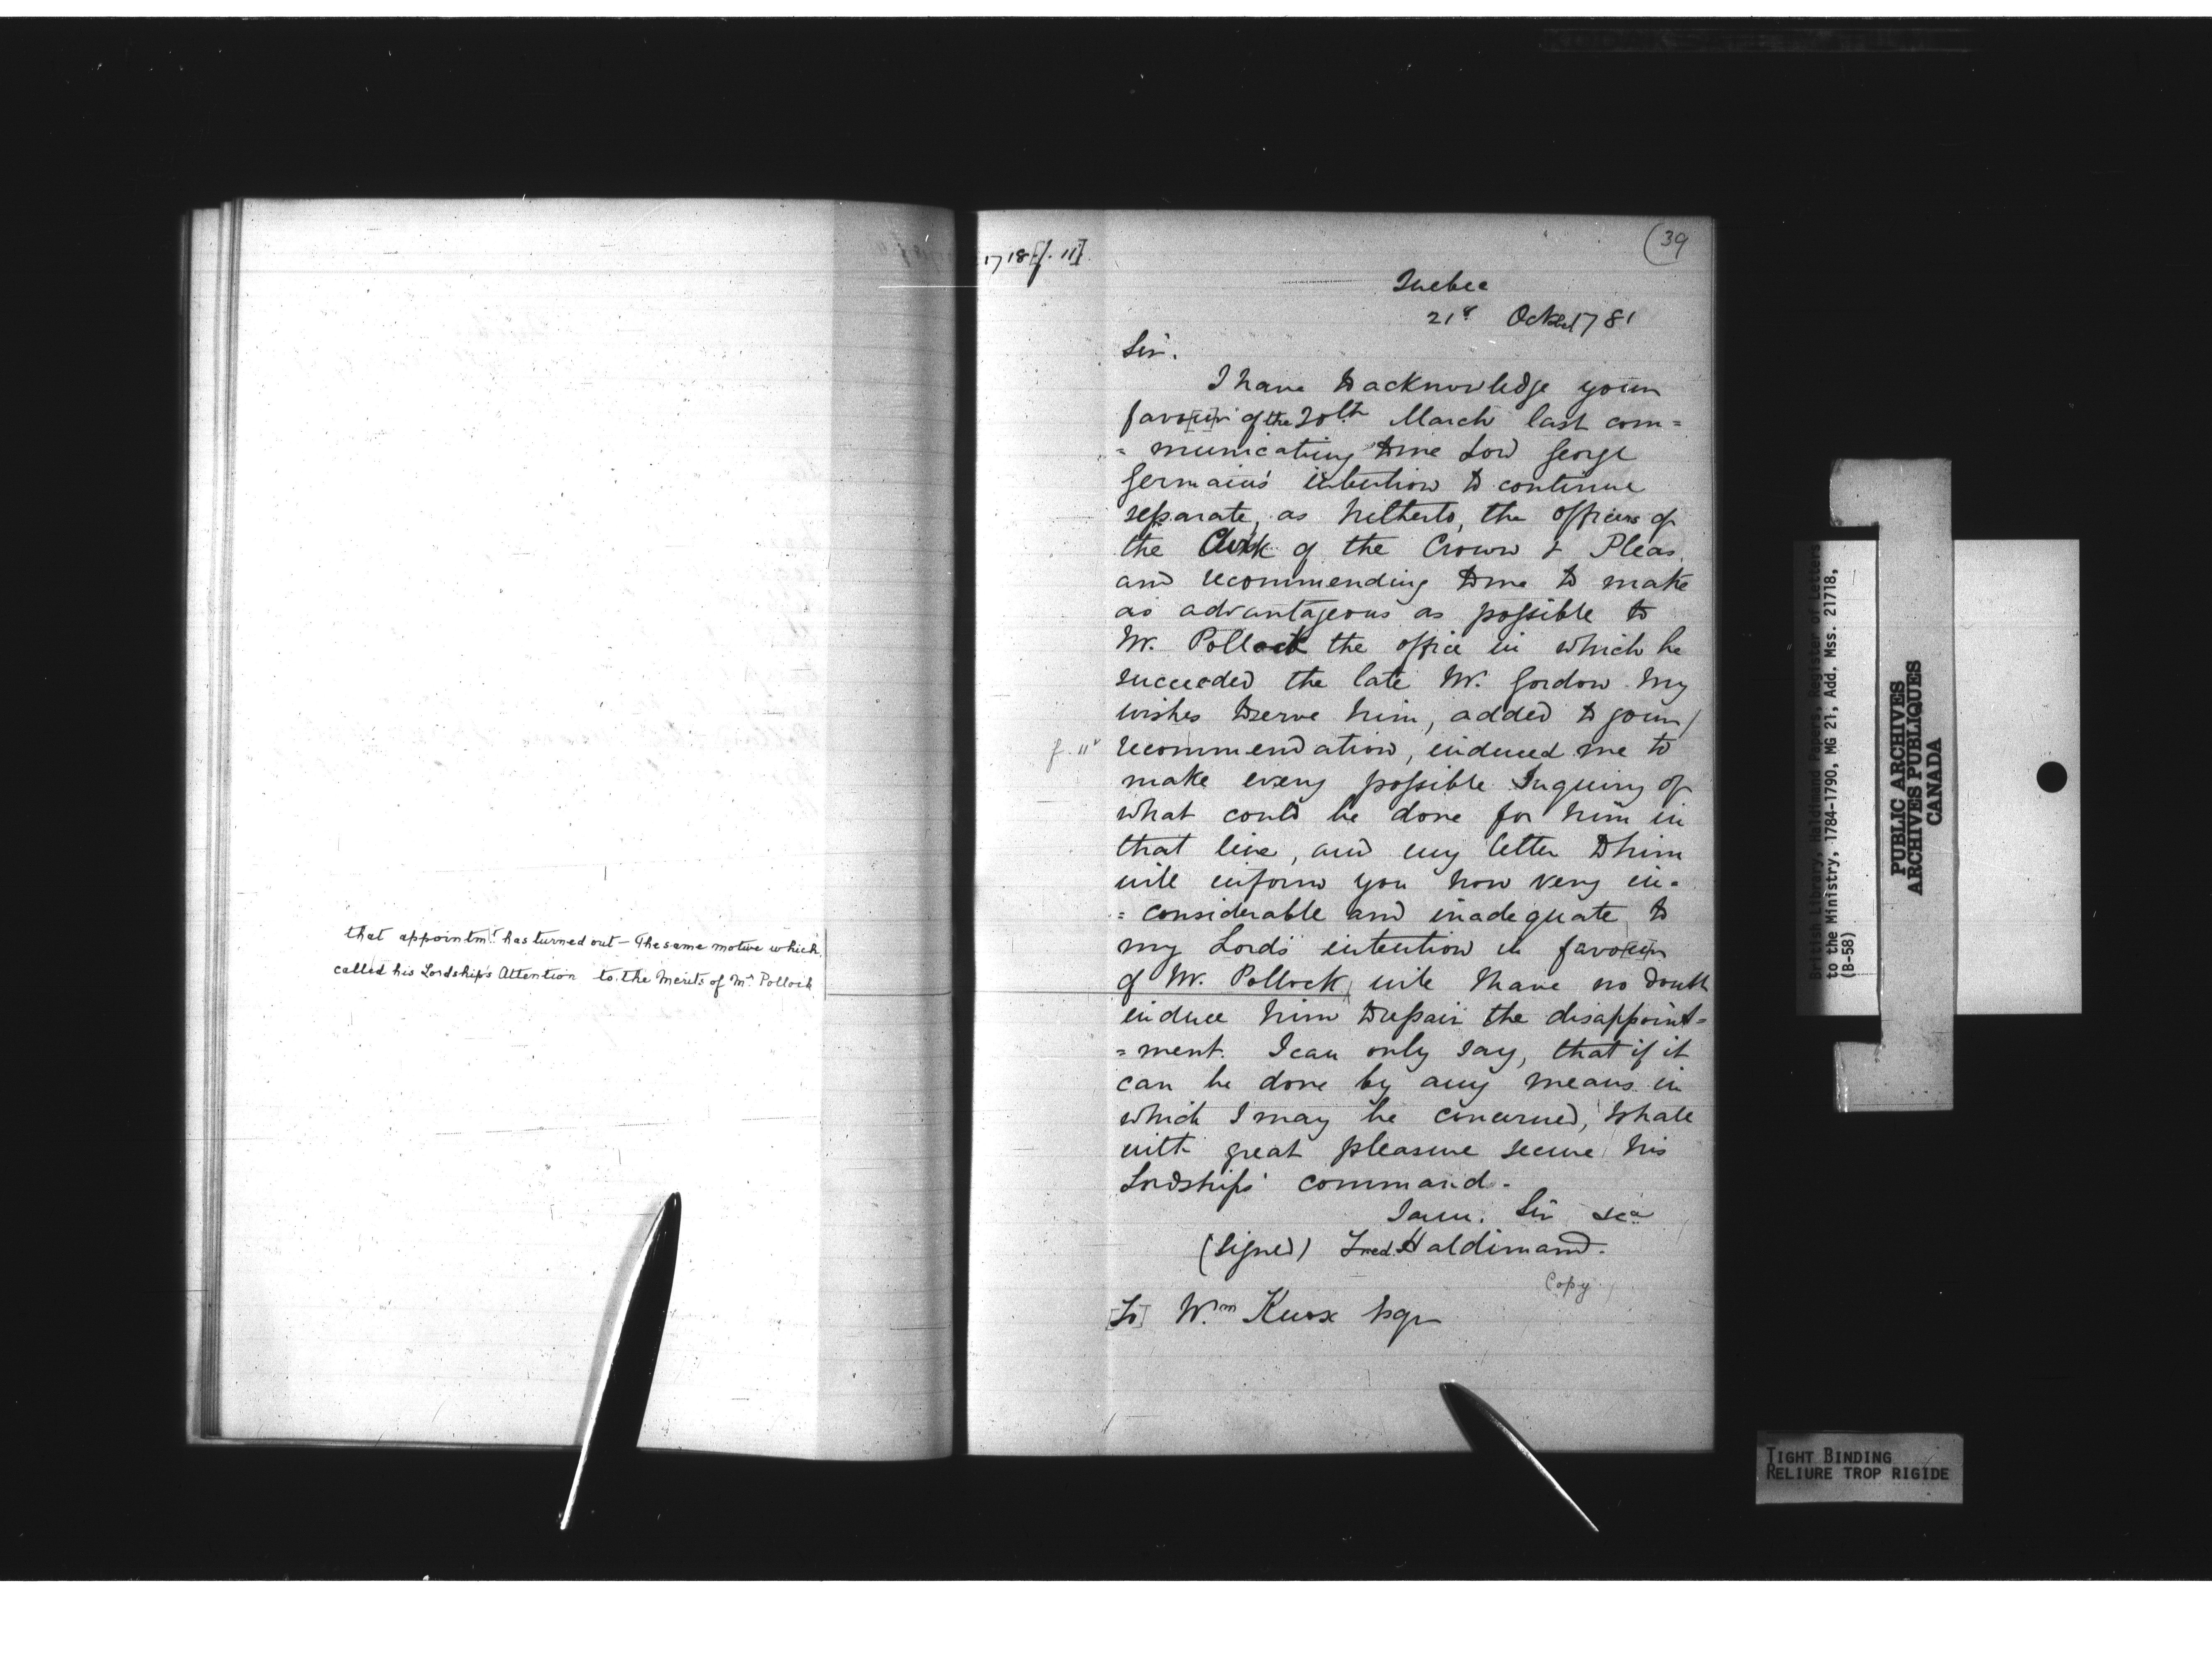 that appointmt has turned out - The same motive which
called his Lordship's Attention to the Merits of Mr Pollock
1718 [f. 11]
(39
Quebec
21st October 1781
Sir.
I have to acknowledge your
favour of the 20th March last com=
=municating to me Lord George
Germain's intention to continue
separate, as hitherto, the offices of
the Clerk of the Crown & Pleas
and recommending to me to make
as advantageous as possible to
Mr. Pollock the office in which he
succeeded the late Mr. Gordon My
wishes to serve him, added to your /
f. 11v
recommendation, induced me to
make every possible Inquiry of
what could be done for him in
that line, and my letter to him
will inform you how very in=
=considerable and inadequate to
my Lord's intention in favour
of Mr. Pollock, will I have no doubt
induce him to repair the disappoint=
=ment. I can only say, that if it
can be done by any means in
which I may be concerned, I shall
with great pleasure secure his
Lordship's command.
I am. Sir &ca
(signed) Fred. Haldimand.
Copy
[To] Wm Knox Esqr
British Library, Haldimand Papers, Register of Letters
to the Ministry, 1784-1790, MG 21, Add. Mss. 21718,
(B-58)
PUBLIC ARCHIVES
ARCHIVES PUBLIQUES
CANADA
TIGHT BINDING
RELIURE TROP RIGIDE